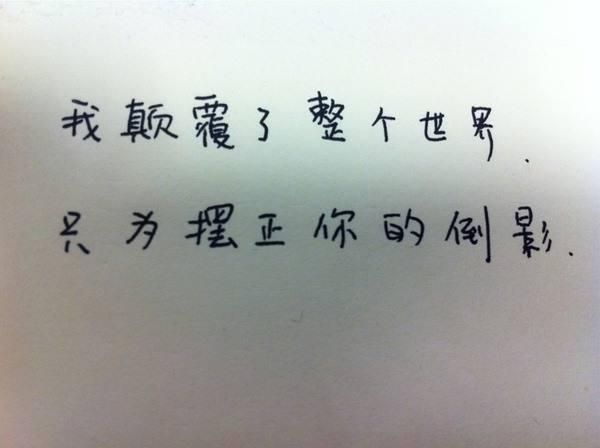 我颠覆了整个世界.
只为摆正你的倒影.